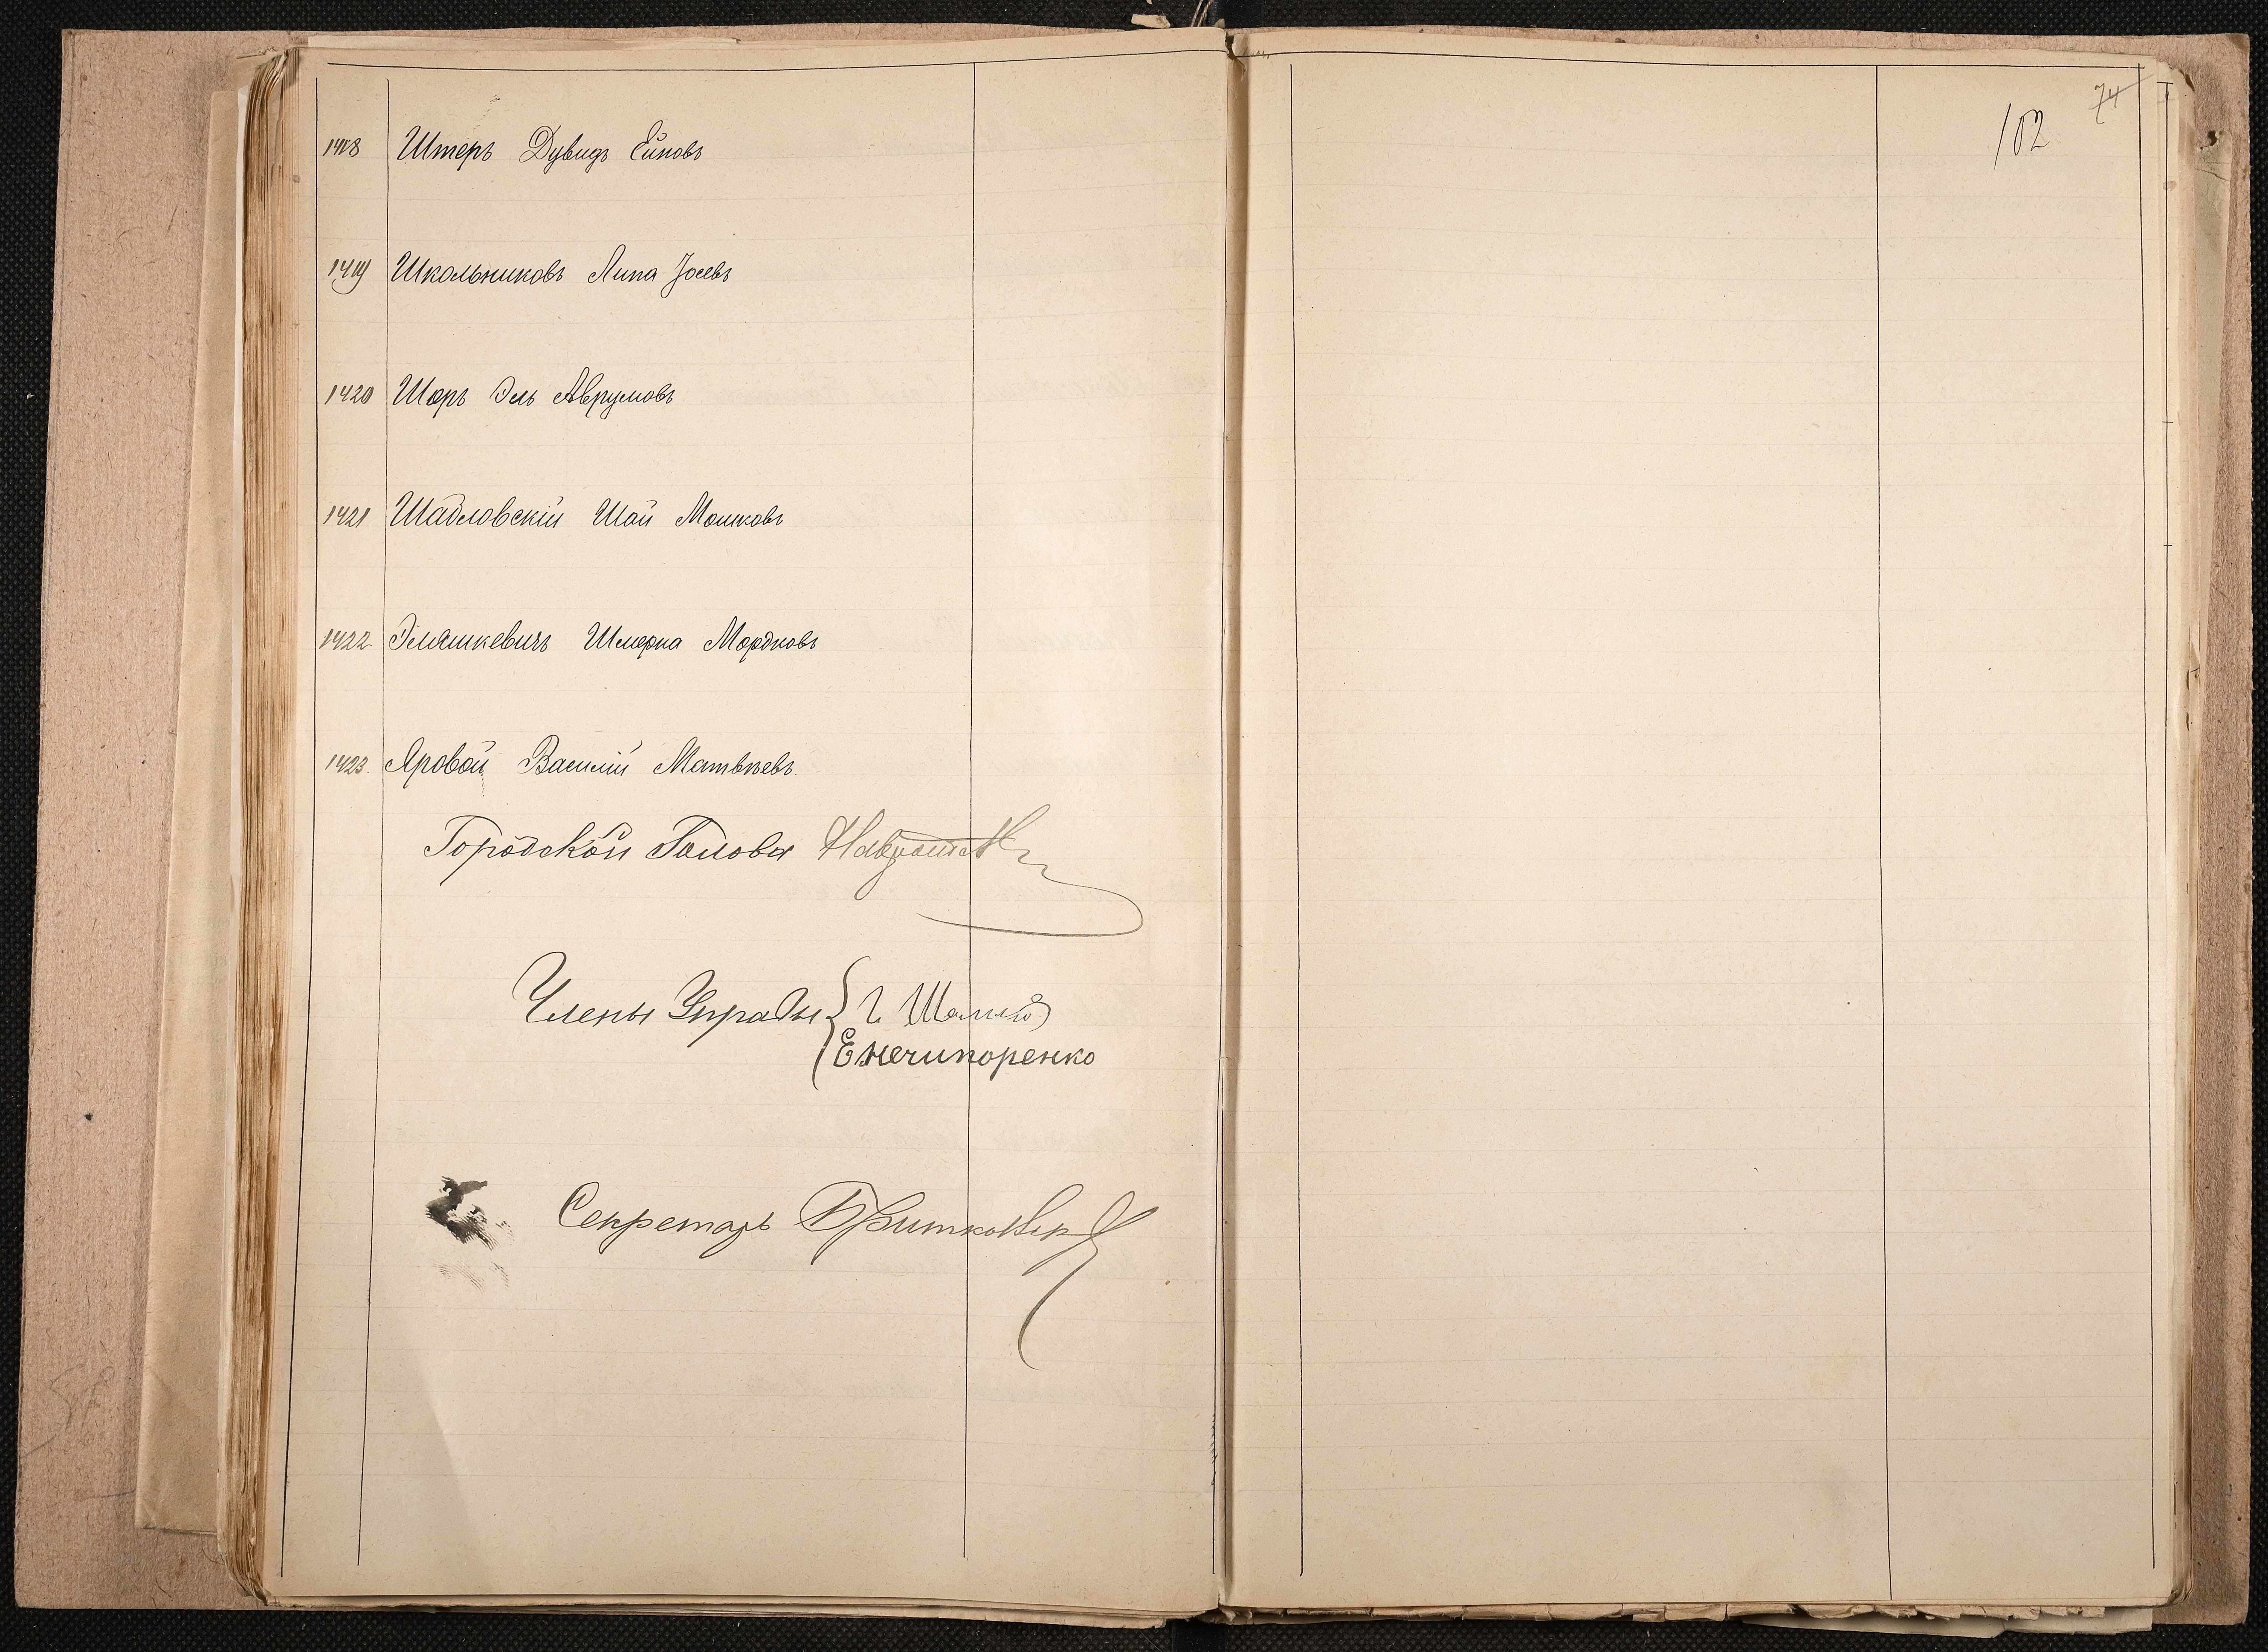 1418 Штеръ Дувидъ Ейновъ
1419 Школьниковъ Липа Јосевъ
1420 Шоръ Эль Аврумовъ
1421 Шадловскій Шай Мошковъ
1422 Эляшкевичъ Шмерка Мордковъ
1423. Яровой Василій Матвѣевъ.
Городской Голова
Члены Управы
Е Нечипоренко
Секретарь
74
102